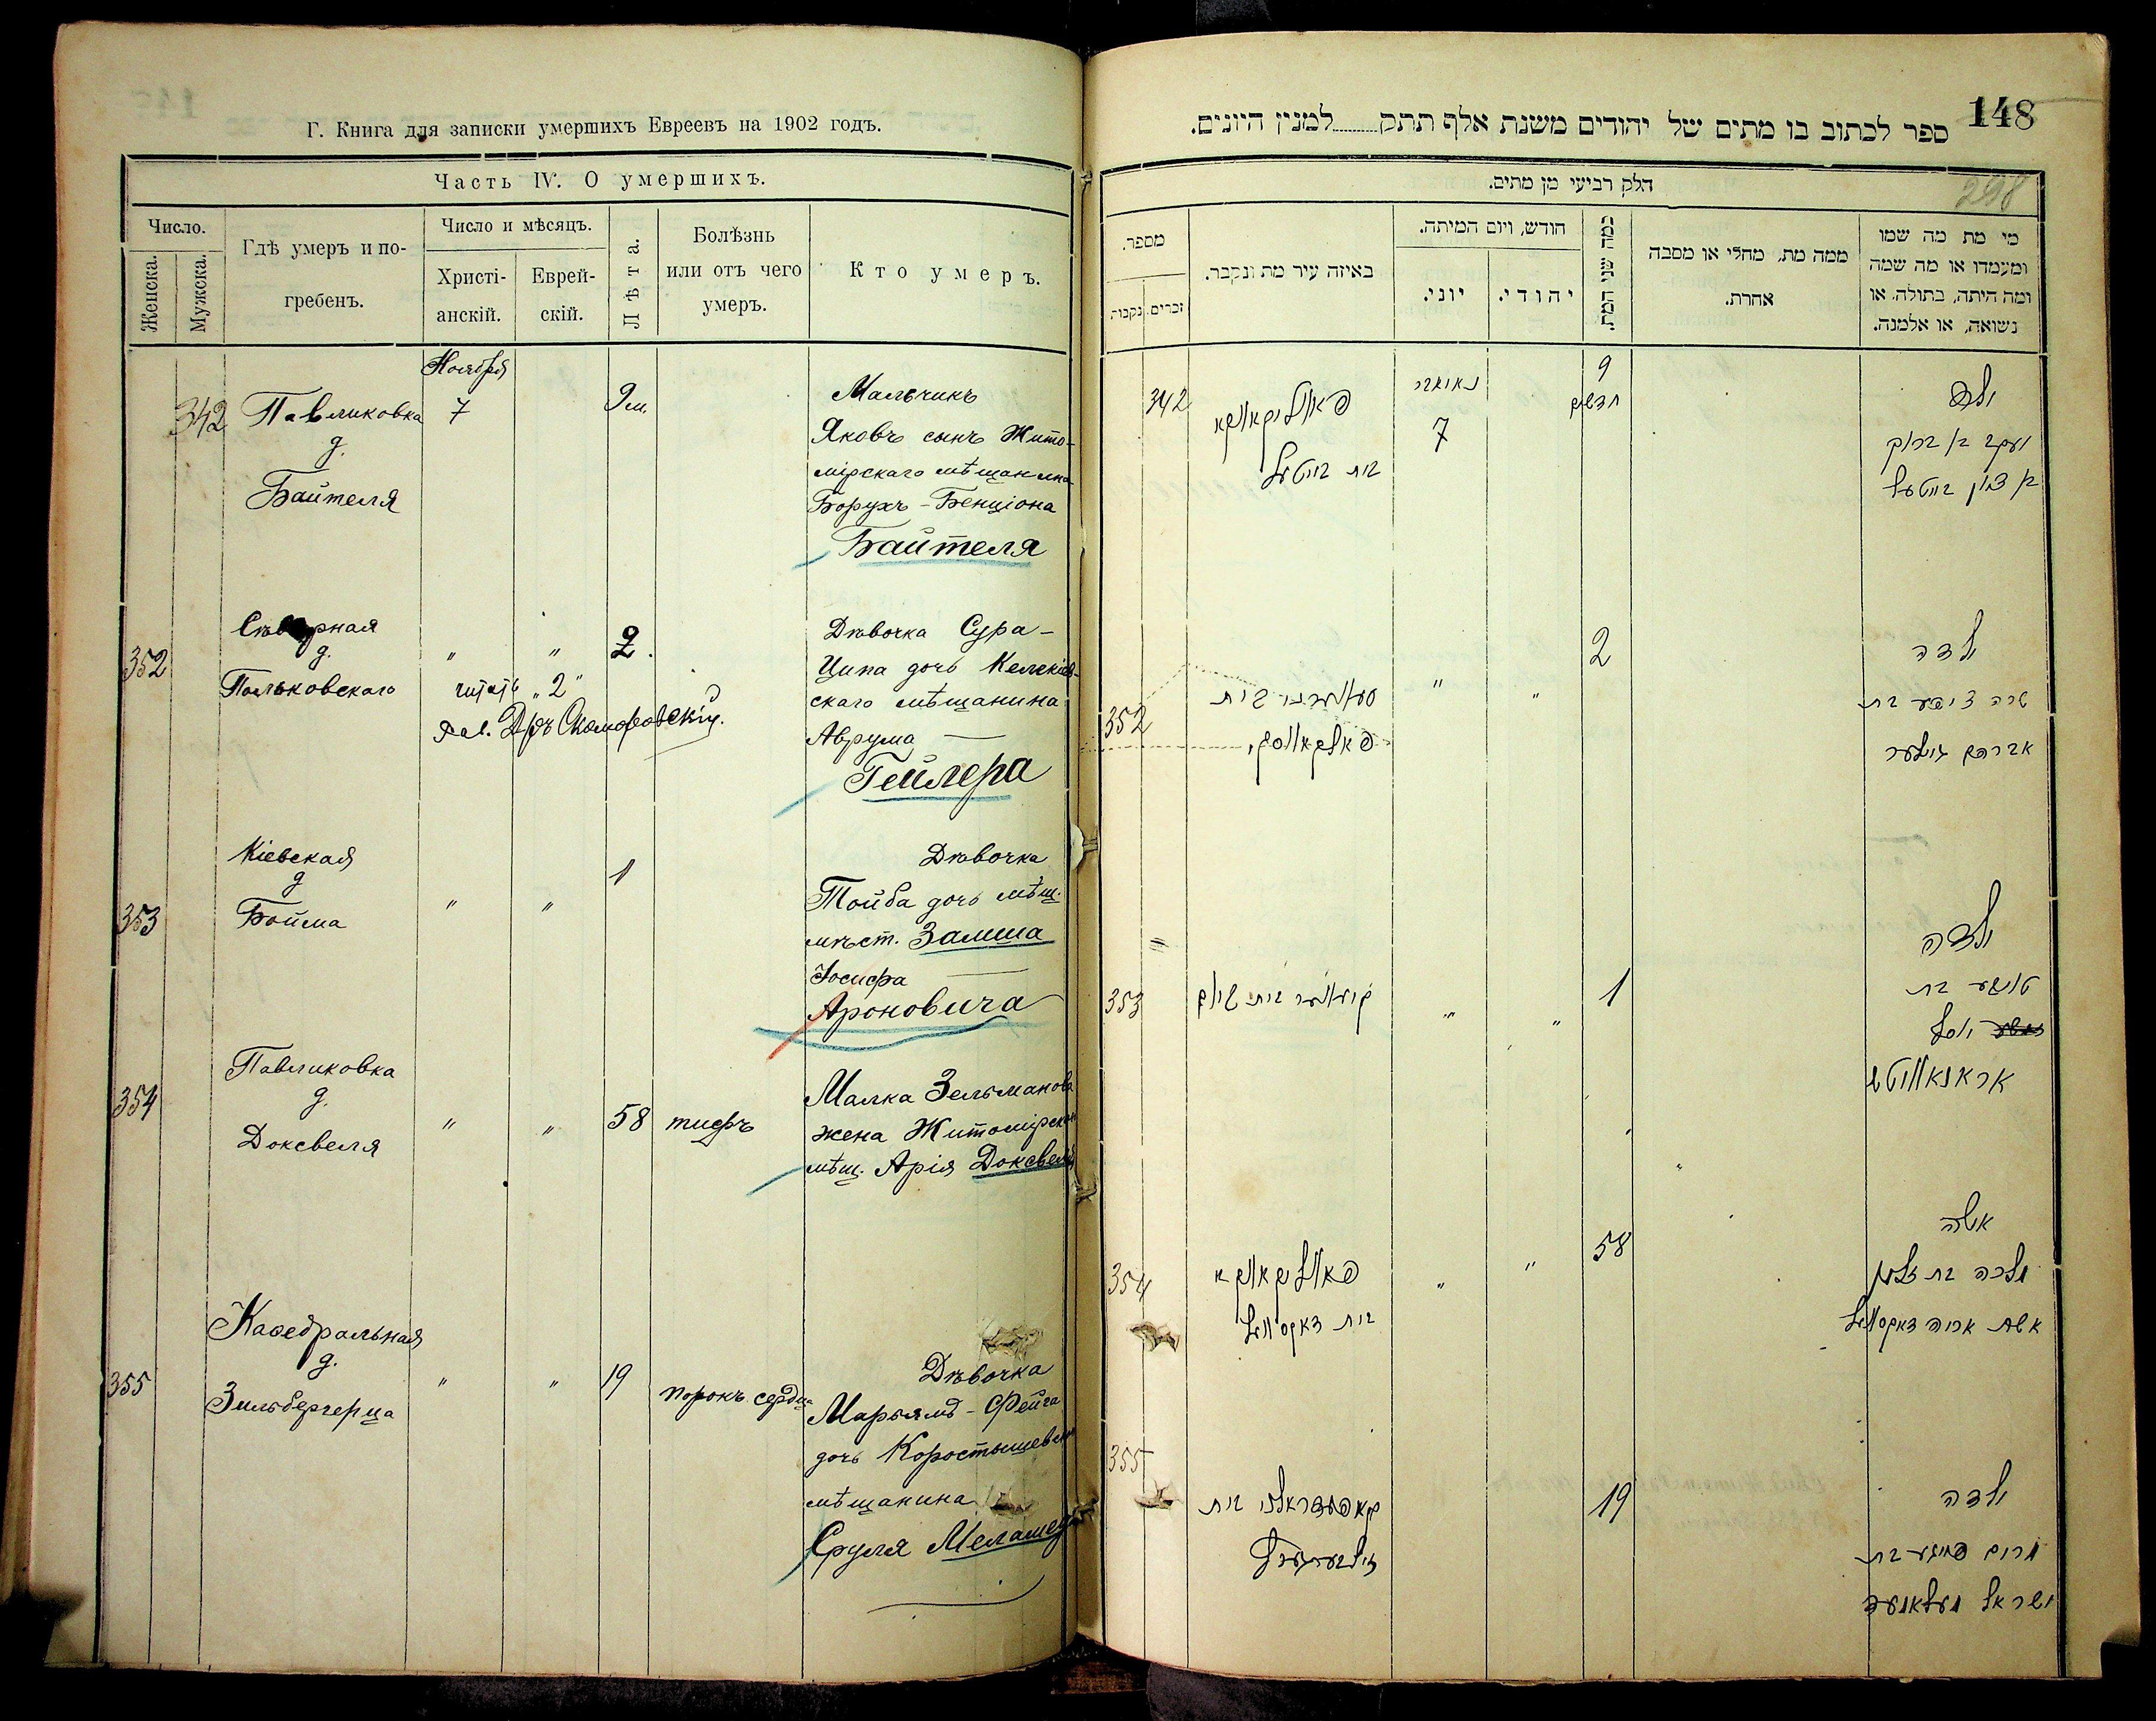 Г. Книга для записки умершихъ Евреевъ на 1902 годъ.
Часть IV. О умершихъ.
Число.
Женска.
Мужска.
Гдѣ умеръ и по-
гребенъ.
Число и мѣсяцъ.
Христі-
анскій.
Еврей-
скій.
Лѣта.
Болѣзнь
или отъ чего
умеръ.
Кто умеръ.
Ноября
342 Павликовка 7 9 м.
д.
Байтеля
Мальчикъ
Яковъ сынъ Жито-
мірскаго мѣщанина
Борухъ-Бенціона
Байтеля
352
Сѣверная
д.
Пальковскаго
" " 2.
читать "2"
Рав. Дръ Скоморовскій.
Дѣвочка Сура-
Ципа дочь
скаго мѣщанина
Аврума
Гейлера
353
Кіевская
д
Бойма
" " 1
Дѣвочка
Тойба дочь мѣщ.
мѣст.
Іосифа
Ароновича
354
Павликовка
д.
Доксвеля
" " 58 тифъ
Малка Зельманова
жена Житомірск
мѣщ. Арія Доксвеля
355
Каѳедральная
д.
Зильбергерца
" " 19 порокъ сердца
Дѣвочка
Марьямъ-Фейга
дочь Коростышевск
мѣщанина
Сруля Меламед
148
ספר לכתוב בו מתים של יהודים משנת אלף תתק למנין היונים.
298
חלק רביעי מן מתים.
מספר.
זכרים.
נקבות
באיזה עיר מת ונקבר.
חודש, ויום המיתה.
יוני.
יהודי.
כמה שני המת
ממה מת, מחלי או מסבה
אחרת.
מי מת מה שמו
ומעמדו או מה שמה
ומה היתה, בתולה, או
נשואה, או אלמנה.
342 פאוליקאווקא
בית בייטעל
נאיאבר
7
9
חדשים
ילד
יעקב בן ברוך
בן ציון בייטעל
352
בית
" " 2
ילדה
שרה ציפע בת
אברהם גיילער
353 קיעווער בית בוים
" " 1
ילדה
טויבע בת
יוסף
אראנאוויטש
354 פאוליקאווקא
בית דאקסוועל
" " 58
אשה
מלכה בת זלמן
אשת אריה דאקסוועל
355
בית
זילבערהערץ
19
ילדה
מרים פייגע בת
ישראל מעלאמעד